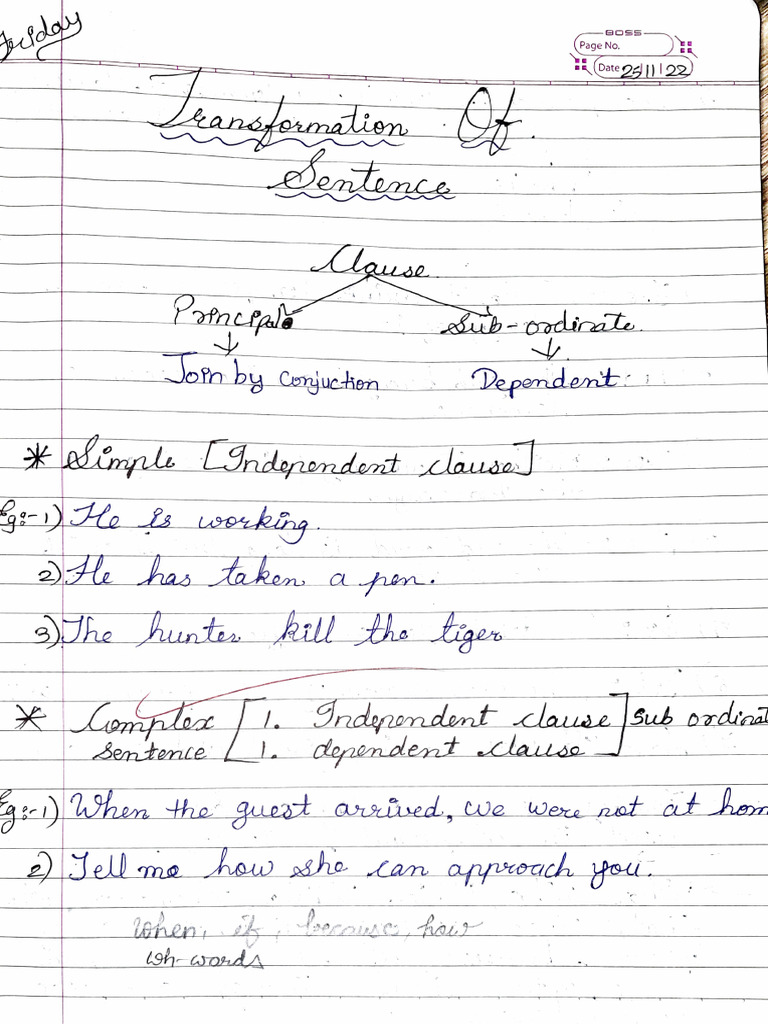 Friday
BOSS
Page No.
Date 25/11/22
Transformation Of.
Sentence
Clause
Principal Sub-ordinate
Join by Conjuction Dependent
* Simple [Independent clause]
Eg:-1) He is working.
2) He has taken a pen.
3) The hunter kill the tiger
* Complex [1. Independent clause] Sub ordinat
Sentence [1. dependent clause]
Eg:-1) When the guest arrived, we were not at hom
2) Tell me how she can approach you.
When, if, because, how
Wh-words